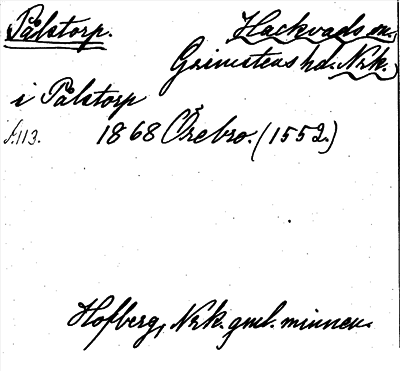 Pålstorp. Hackvads sn.
Grimstens hd. Nrk.
i Pålstorp
s. 113. 1868 Örebro. (1552.)
Hofberg, Nrk. gml. minnen.